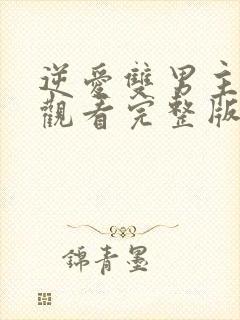 逆愛雙男主
觀看完整版
錦青墨